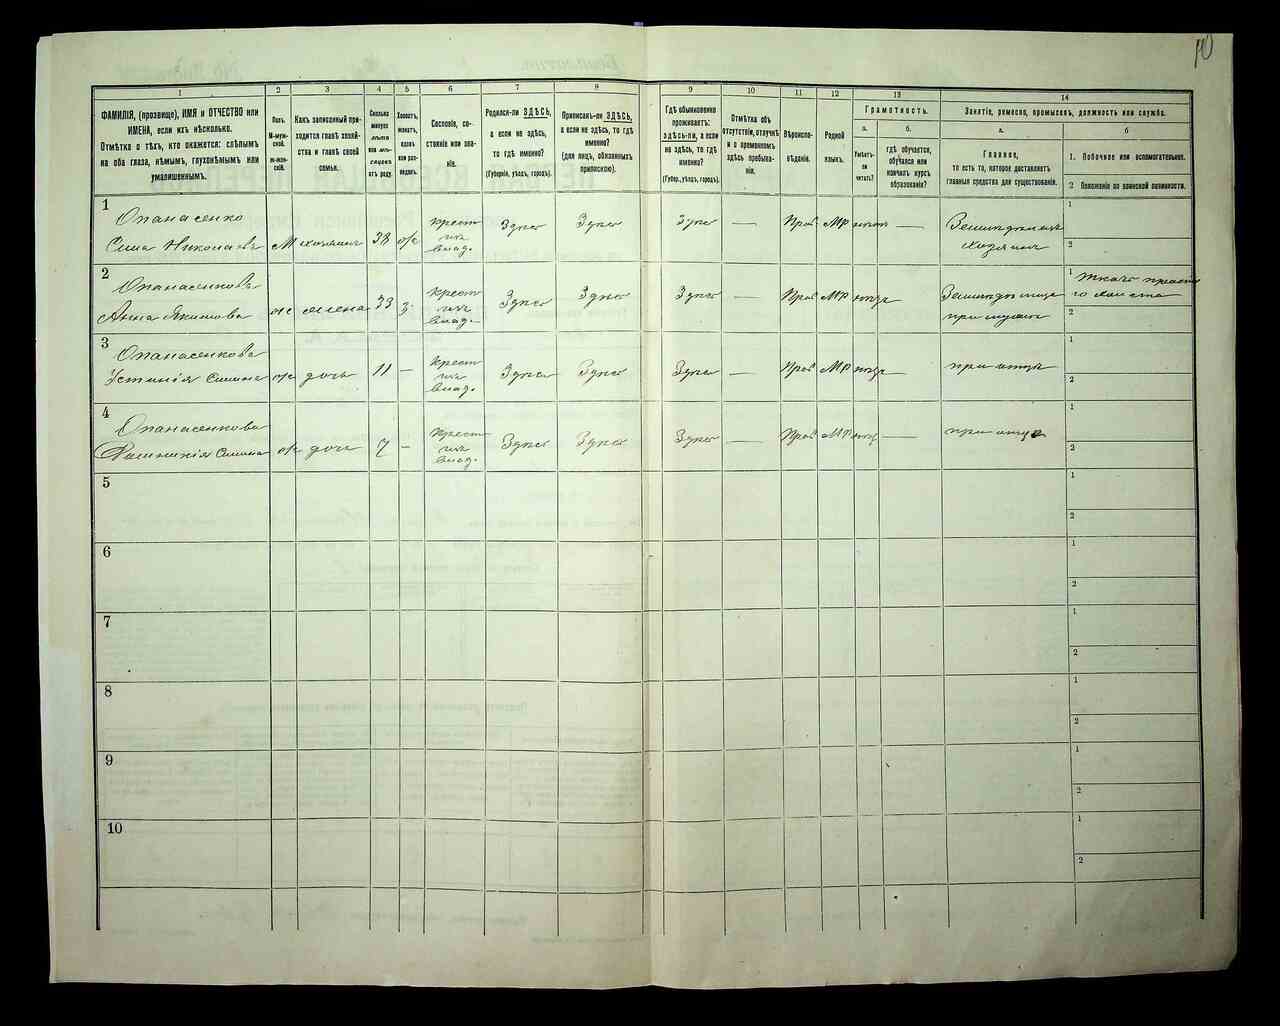 10
1
2
3
4
5
6
7
8
9
10
11
12
13
14
ФАМИЛІЯ, (прозвище), ИМЯ и ОТЧЕСТВО или
ИМЕНА, если ихъ нѣсколько.
Отмѣтка о тѣхъ, кто окажется: слѣпымъ
на оба глаза, нѣмымъ, глухонѣмымъ или
умалишеннымъ.
Полъ.
М-муж-
ской.
ж-жен-
скій.
Какъ записанный при-
ходится главѣ хозяй-
ства и главѣ своей
семьи.
Сколько
минуло
лѣтъ
или мѣ-
сяцевъ
отъ роду.
Холостъ,
женатъ,
вдовъ
или раз-
веденъ.
Сословіе, со-
стояніе или зва-
ніе.
Родился-ли ЗДѢСЬ,
а если не здѣсь,
то гдѣ именно?
(Губернія, уѣздъ, городъ).
Приписанъ-ли ЗДѢСЬ,
а если не здѣсь, то гдѣ
именно?
(для лицъ, обязанныхъ
припиской).
Гдѣ обыкновенно
проживаетъ:
здѣсь-ли, а если
не здѣсь, то гдѣ
именно?
(Губер., уѣздъ, городъ).
Отмѣтка объ
отсутствіи, отлучкѣ
и о временномъ
здѣсь пребыва-
ніи.
Вѣроиспо-
вѣданіе.
Родной
языкъ.
Грамотность.
а.
Умѣетъ-
ли
читать?
б.
гдѣ обучается,
обучался или
кончилъ курсъ
образованія?
Занятіе, ремесло, промыселъ, должность или служба.
а.
Главное,
то есть то, которое доставляетъ
главныя средства для существованія.
б
1. Побочное или вспомогательное.
2 Положеніе по воинской повинности.
1
Опанасенко
Николаевъ М хозяинъ 38 ж
крест
из
влад.
Здѣсь Здѣсь Здѣсь — Прав МР нѣтъ —
Земледѣлецъ
хозяинъ
1
2
2
Опанасенкова
Анна Якимова ж жена 33 з
крест
из
влад.
Здѣсь Здѣсь Здѣсь — Прав МР нѣтъ
при мужѣ
1
2
3
Опанасенкова
Устинія ж дочь 11 —
крест
из
влад.
Здѣсь Здѣсь Здѣсь Прав МР нѣтъ —
при отцѣ
1
2
4
Опанасенкова
ж дочь 7 —
крест
из
влад.
Здѣсь Здѣсь Здѣсь — Прав МР нѣтъ —
при отцѣ
1
2
5
1
2
6
1
2
7
1
2
8
1
2
9
1
2
10
1
2